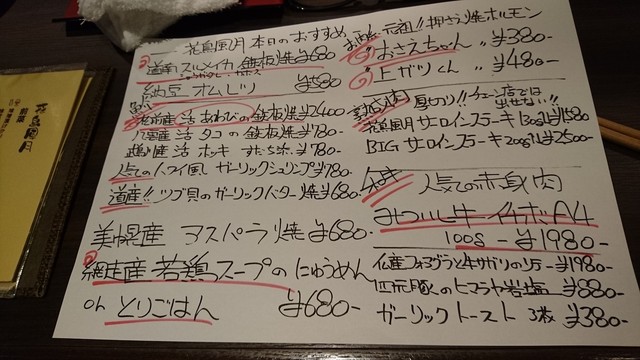 花鳥風月 本日のおすすめ
道南 スルメイカ 鉄板焼 ¥680
納豆オムレツ ¥580
産活あわびの鉄板焼 ¥2400
産活タコの鉄板焼 ¥780-
産活ホッキ ¥780-
人気のハワイ風ガーリックシュリンプ ¥780-
道産!! ツブ貝のガーリックバター焼 ¥680-
美幌産 アスパラ焼 ¥680-
網走産 若鶏スープのにゅうめん
or とりごはん ¥680-
元祖!! 押さえ焼ホルモン
おさえちゃん 〃 ¥380-
上ガツくん 〃 ¥480-
厚切り!! チェーン店では
出せない!!
花鳥風月 サーロインステーキ 130g ¥1580
BIG サーロインステーキ 200g ¥2500-
人気の赤身肉
みついし牛 イチボ A4
100g - ¥1980-
仏産フォアグラと牛サガリのソテー ¥1980-
匹元豚のヒマラヤ岩塩 ¥880-
ガーリックトースト 3枚 ¥380-
花鳥風月